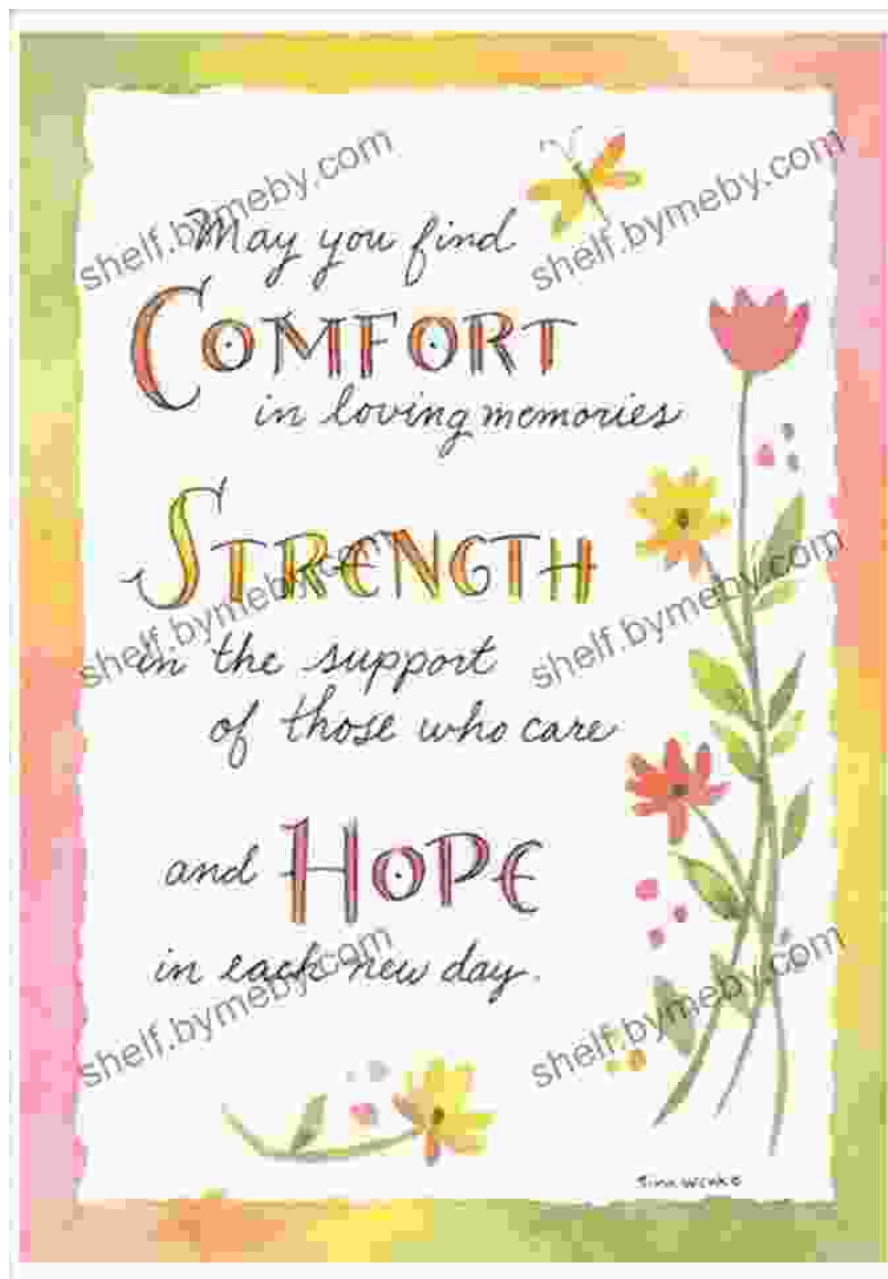 May you find
COMFORT
in loving memories
STRENGTH
in the support
of those who care
and HOPE
in each new day.
shelf.bymeby.com
shelf.bymeby.com
shelf.bymeby.com
shelf.bymeby.com
shelf.bymeby.com
shelf.bymeby.com